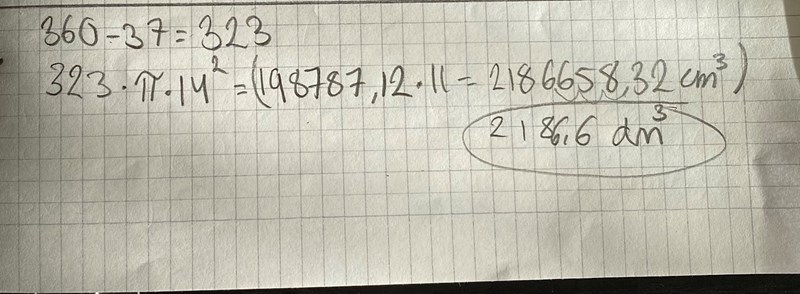 360-37=323
323·π·14²=(198787,12·11=2186658,32 cm³)
2186,6 dm³